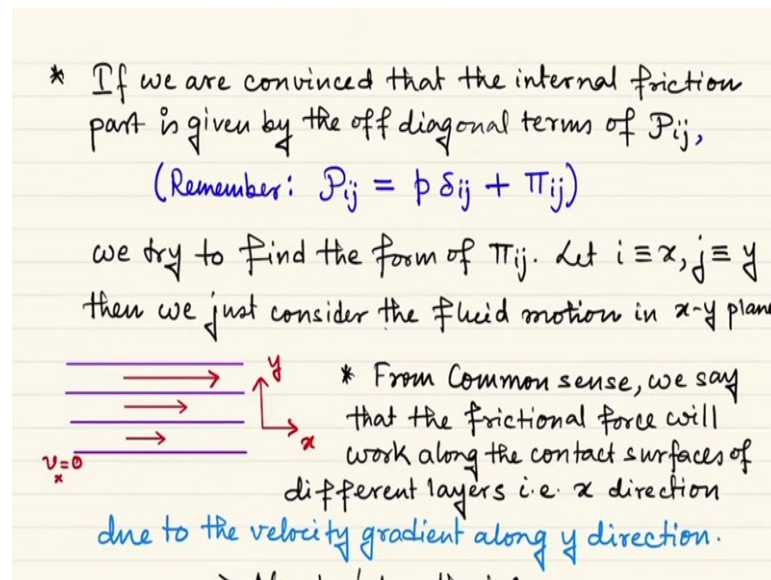 * If we are convinced that the internal friction
part is given by the off diagonal terms of Pij,
(Remember: Pij = p δij + πij)
we try to find the form of πij. Let i ≡ x, j ≡ y
then we just consider the fluid motion in x-y plane
y
x
vx=0
* From Common sense, we say
that the frictional force will
work along the contact surfaces of
different layers i.e. x direction
due to the velocity gradient along y direction.